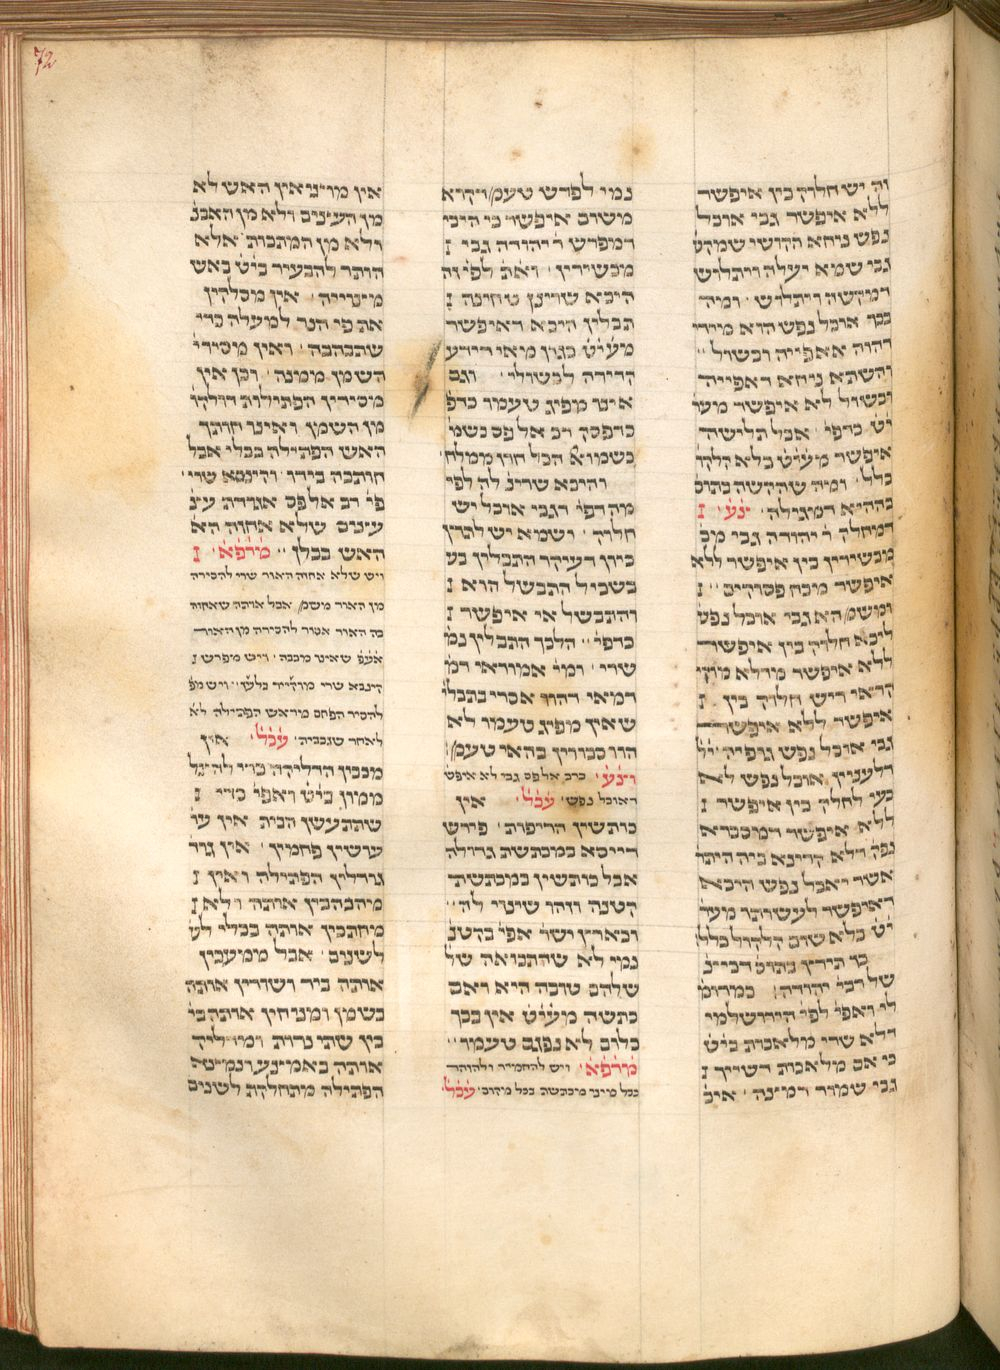 72
וה יש חלוק בין איפשר
ללא איפשר גבי אוכל
נפש ניחא הקדשי שמקש
גבי שמא יעלה ויתלוש
דמקשה ויתלוש ׳ ומיה
בכך אוכל נפש הוא מידי
דהוה אאפייה ובשול ׳׳
והשתא ניחא דאפייה
ובשול לא איפשר מער
יט כדפי׳ אבל תלישה
איפשר מעיט בלא הלקה
כלל ׳ ומיה שהקשה בתוס
בההיא דמגילה ׳ ינע׳ ז
דמחלק ר יהודה גבי מכ
מכשירין בין איפשר ללא
איפשר מכח פסוקים ׳׳ ז
ומשמ הא גבי אוכל נפש
ליכא חלוק בין איפשר
ללא איפשר מדלא מוקי
קראי דיש חלוק בין ז
איפשר ללא איפשר
גבי אוכל נפש גופיה ויל
דלעניין אוכל נפש לא
בעי לחלק בין איפשר ז
ללא איפשר דמסברא
נפק דלא קרינא ביה היתר
אשר יאכל נפש היכא
דאיפשר לעשותו מער
יט בלא שום קלקול כלל
כו תירץ בתוס דביצ
של רבי יהודה׳ כמרומ
לי ואפי׳ לפי הירושלמי
דלא שרי מלאכות ביט
כי אם מלאכות דשייך ז
גבי שמדר דמינה ׳ איכ
נמי לפרש טעמ וקרא
משום איפשר כי היכי
דמפרש ר יהודה גבי ז
מכשירין ׳ ואת לפי זה
היכא שרינן טחינה ז
תבלין היכא דאיפשר
מעיט כגון מאי דידע
קדירה לבשולי ׳ וגם
אינו מפיג טעמו כדפ
כדפסק רב אלפס כשמ
כשמוא הכל חוץ ממלח׳
והיכא שרינ לה לפי
מה דפי דגבי אוכל יש
חלוק ׳ ושמא יש לתרץ
כיון דעיקר התבלין בש
בשביל התבשל הוא ז
והתבשל אי איפשר ז
כדפי׳ ׳ הלכך התבלין נמ
שרי ׳ ומי אמוראי דמ
דמאי דהוו אסרי בתבלי
שאין מפיג טעמו לא
הוו סבורין כהאי טעמ
וינע׳ כרב אלפס גבי לא איפש
דאוכל נפש ׳ עכל׳ אין
כותשין הריפות ׳ פירש
דייסא במכתשת גדולה
אבל כותשין במכתשית
קטנה וזהו שינוי לה ׳׳
ובארץ ישר׳ אפי׳ בקטנ
נמי לא שהתבואה של
שלהם טובה היא ואם
כתשה מעיט אין בכך
כלום לא נפגם טעמו ׳׳
מרפא׳ ויש להחמיר ולהזהר
בכל מיני מכתשה בכל מקום ׳ עכל׳
אין מוציאין האש לא
מן העצים ולא מן האבנ
ולא מן המתכות ׳ אלא
הותר להבעיר ביט באש
מצוייה ׳ אין מסלקין
את פי הנר למעלה כדי
שתכבה ׳ ואין מסירי
השמן ממנה ׳ וכן אין
מסירין הפתילות דולקו
מן השמן ואינו חותך
האש הפתילה בכלי אבל
חותכה בידו והינטא שרי׳
פי׳ רב אלפס אגודה עצ
עצים שלא אחזה הא
האש בכלן ׳׳ מרפא׳ ז
ויש שלא אחזה האור שרי להסירה
מן האור משמ אבל אותה שאחזה
בה האור אסור להסירה מן האור
אעפ שאינו מכבה ׳ ויש מיפרש ז
קינבא שרי מוקיר בלעז׳ ויש מפ
להסיר הפחם מיראש הפתילה לא
לאחר שנכביה׳ עכל׳ אין
מכבין הדליקה כדי להציל
ממון ביט ואפי׳ כדי ז
שתתעשן הבית אין עו
עושין פחמין ׳ אין גוד
גודלין הפתילה ואין ז
מהבהבין אותה ולא ז
מחתכין אותה בכלי לש
לשנים ׳ אבל ממעכין
אותה ביד ושורין אותה
בשמן ומניחין אותה בי
בין שתי נרות ומדליק
אותה באמצע ונמצא
הפתילה מתחלקת לשנים